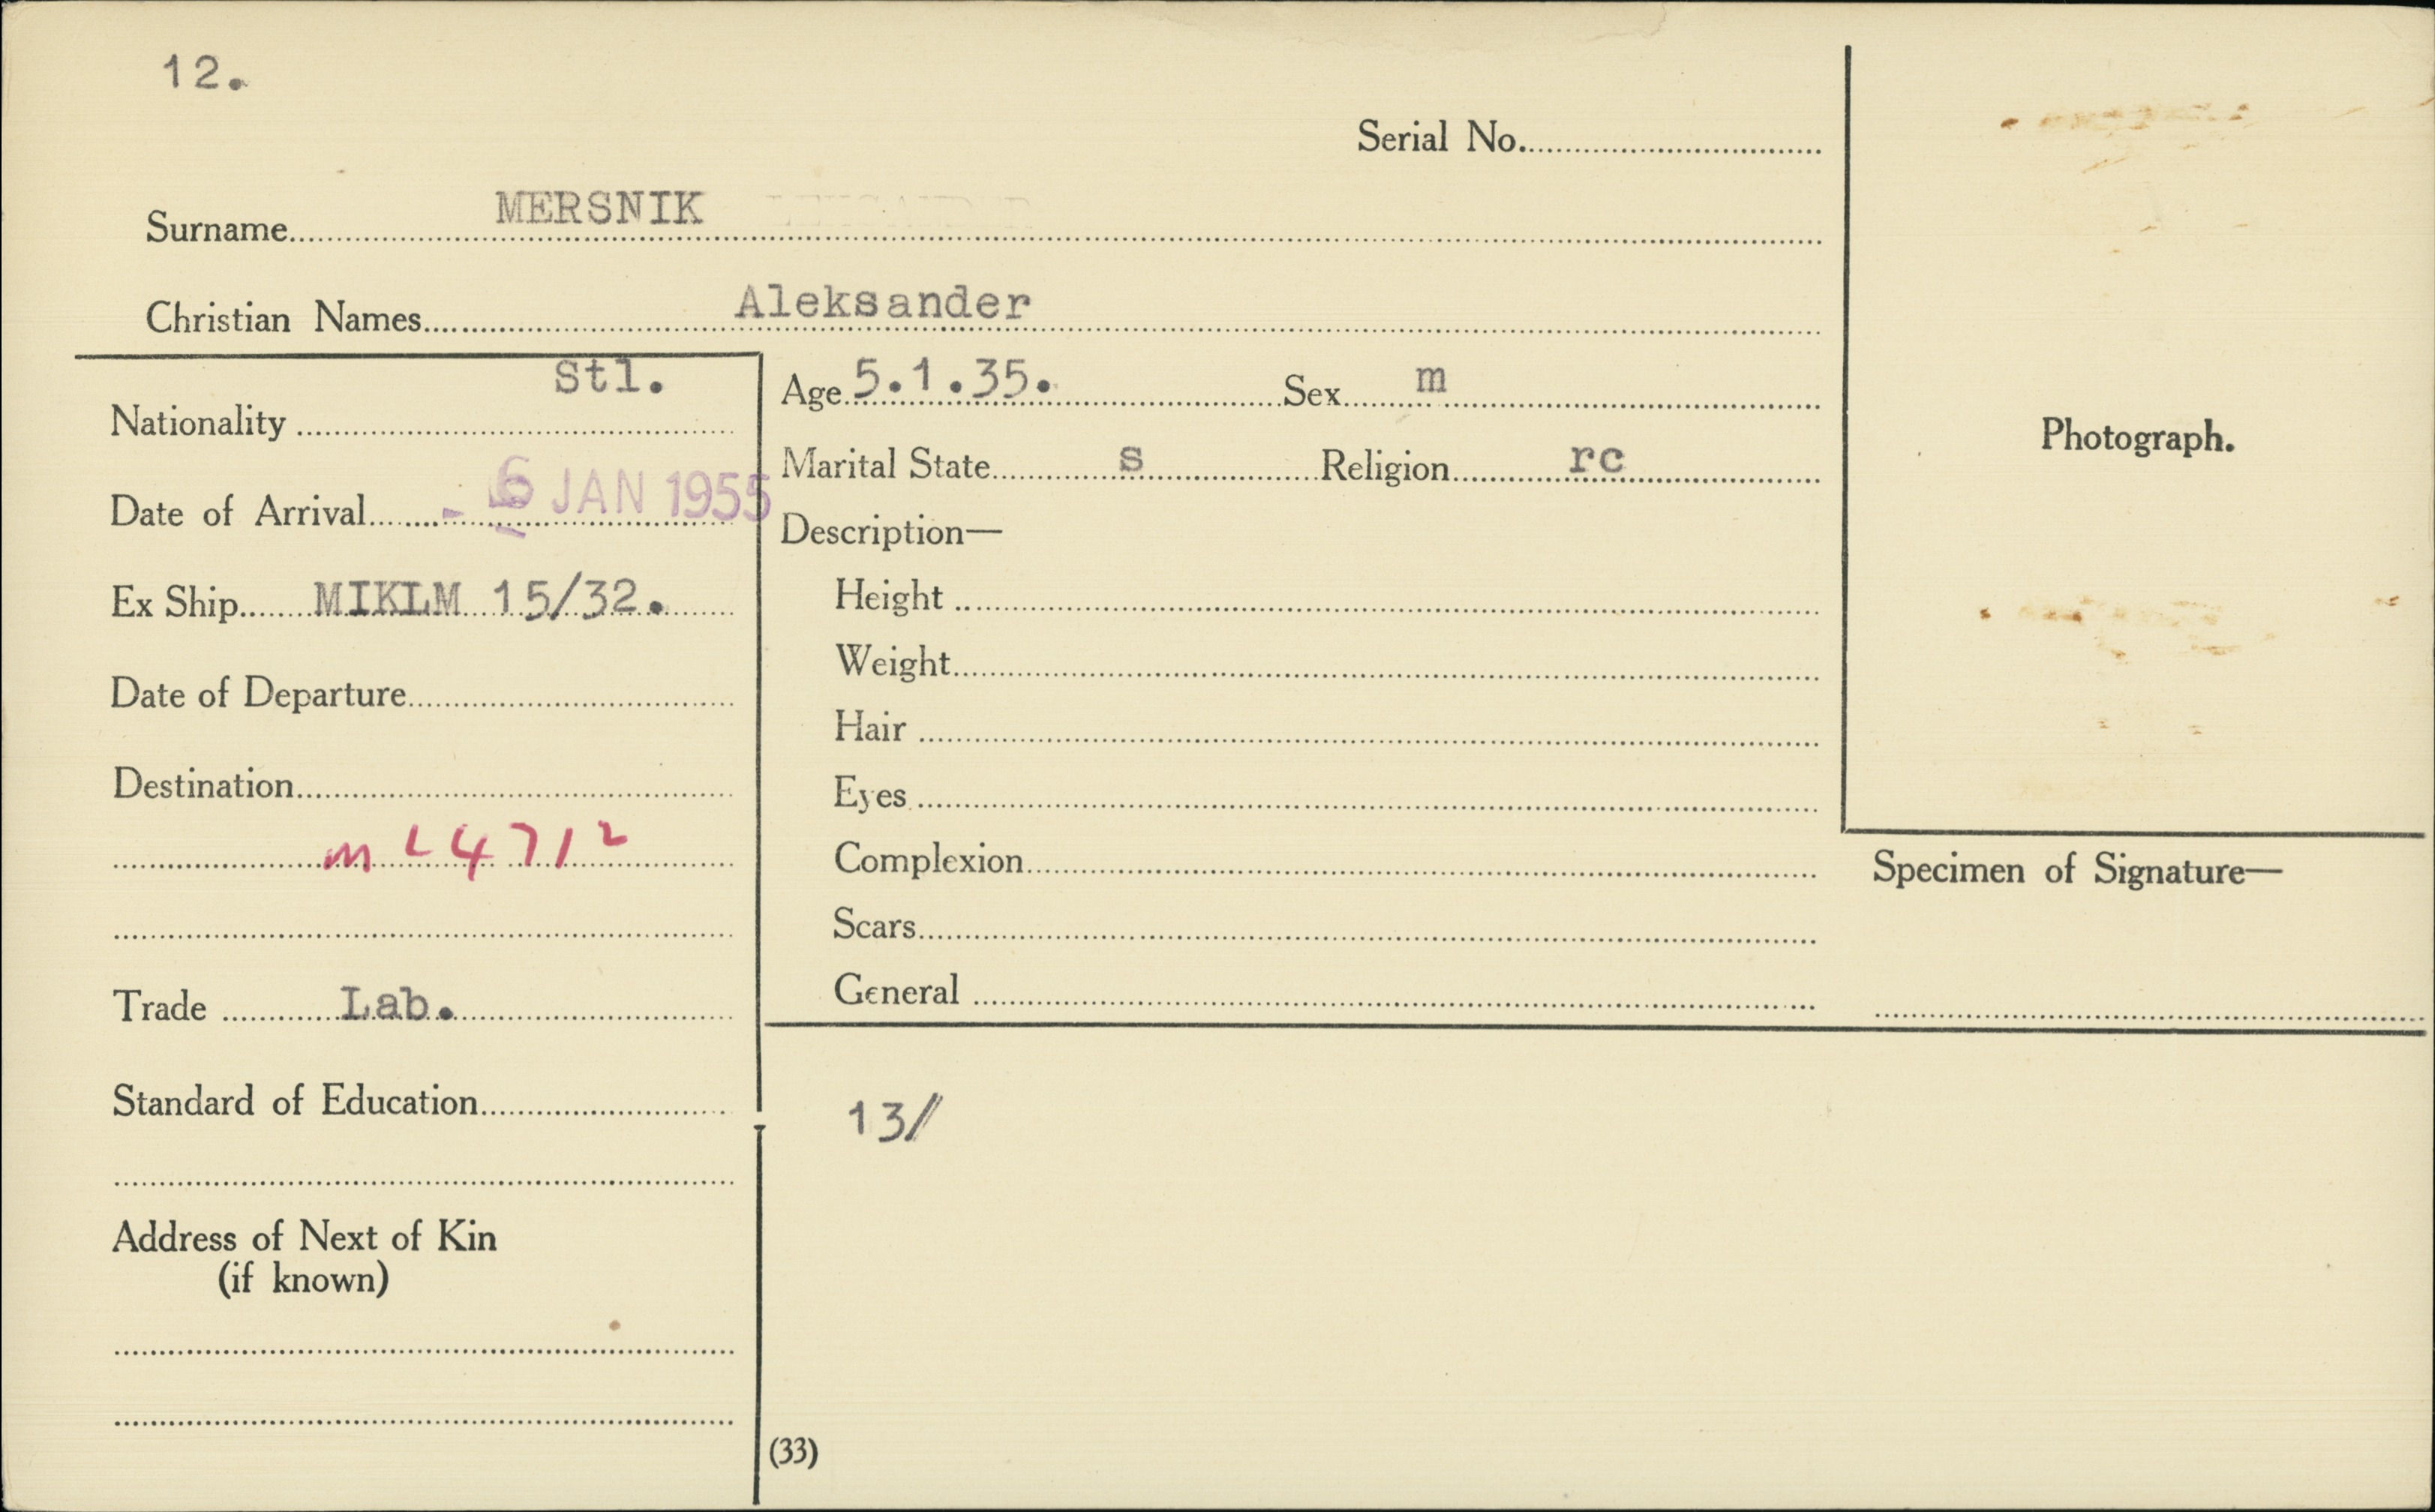 12.
Serial No.
Surname MERSNIK
Christian Names Aleksander
Nationality Stl.
Date of Arrival - 6 JAN 1955
Ex Ship MIKLM 15/32.
Date of Departure
Destination
M L 4712
Trade Lab.
Standard of Education
Address of Next of Kin
(if known)
Age 5.1.35. Sex m
Marital State s Religion rc
Description—
Height
Weight
Hair
Eyes
Complexion
Scars
General
Photograph.
Specimen of Signature—
13/
(33)